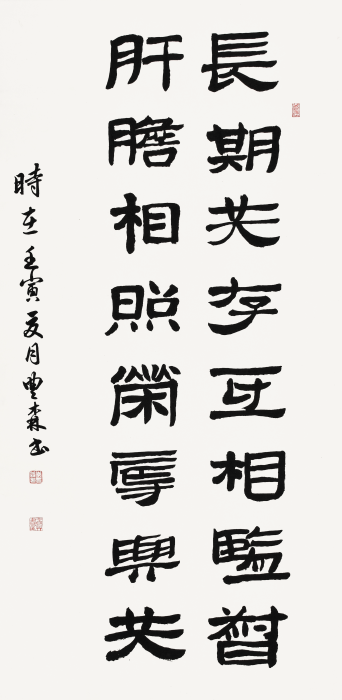 長期共存互相監督
肝膽相照榮辱與共
時在壬寅夏月豐森書